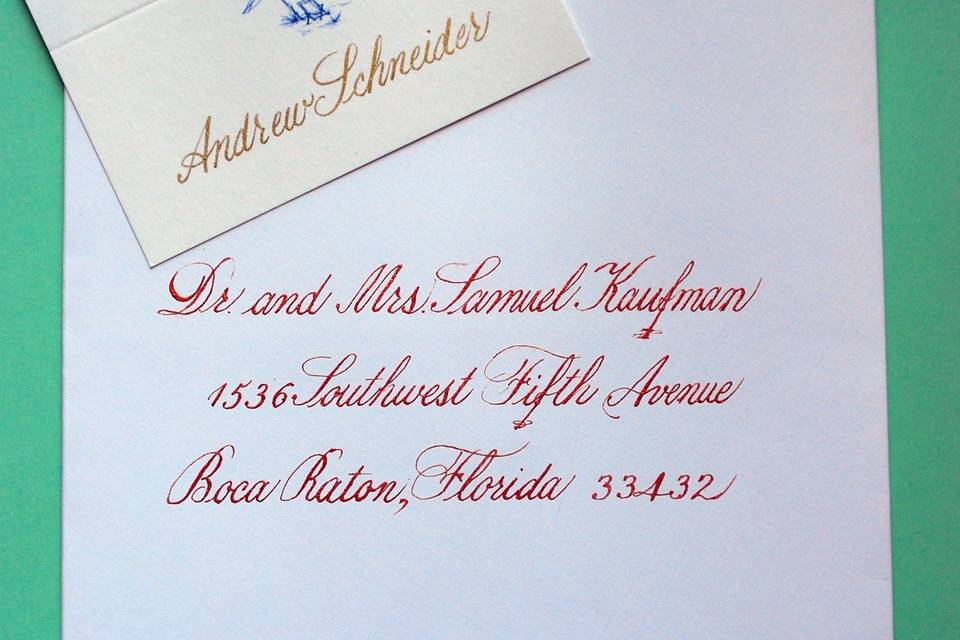 Andrew Schneider
Dr. and Mrs. Samuel Kaufman
1536 Southwest Fifth Avenue
Boca Raton, Florida 33432